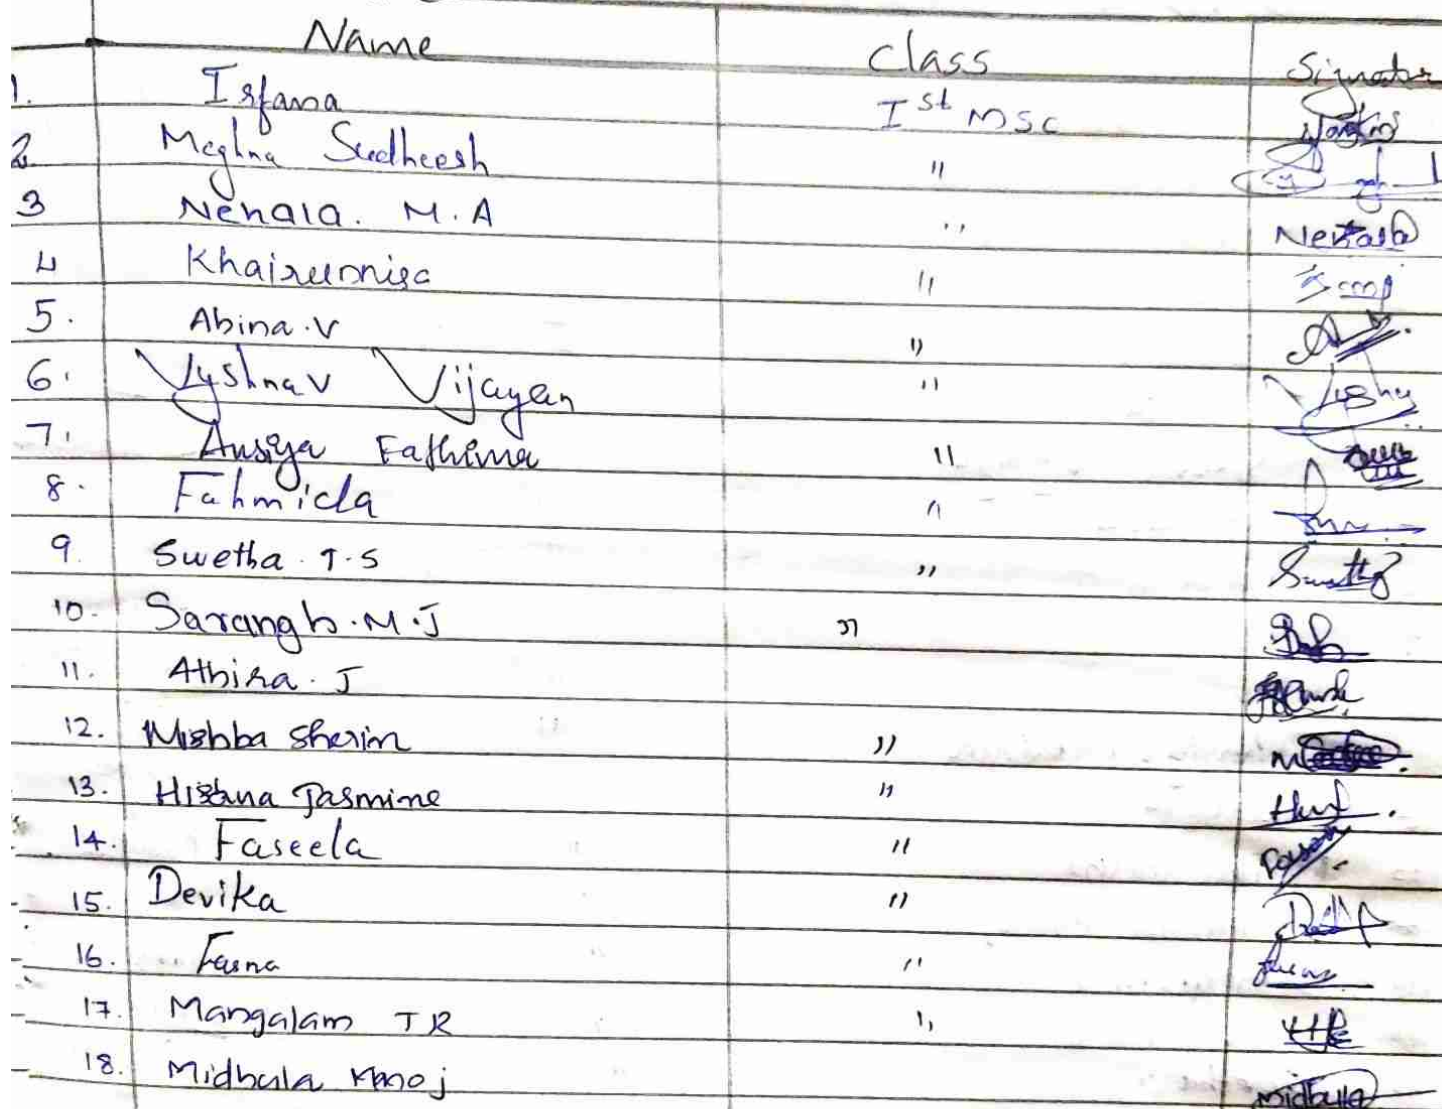 Name Class Signature
1. Irfana Ist MSC
2 Meghna Sudheesh "
3 Nehala. M.A " Nehala
4 Khairunnisa "
5. Abina.V "
6. Vyshnav Vijayan " Vyshnav
7. Ansiya Fathima "
8. Fahmida "
9. Swetha.T.S " Swetha
10. Sarangh.M.J "
11. Athira.J
12. Mishba Sherin "
13. Hishna Jasmine "
14. Faseela "
15. Devika "
16. Fasna "
17. Mangalam TR "
18. Midhula Manoj Midhula